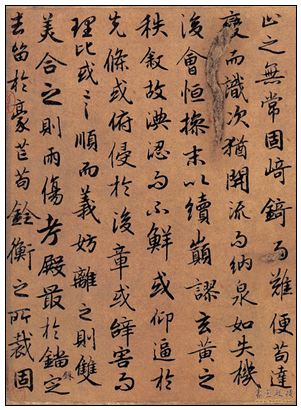 止之無常固崎錡而難便苟達
變而識次猶開流而納泉如失機
後會恒操末以續巔謬玄黃之
秩敘故淟涊而不鮮或仰逼於
先條或俯侵於後章或辭害而
理比或言順而義妨離之則雙
美合之則兩傷考殿最於錙銖定
去留於豪芒苟銓衡之所裁固